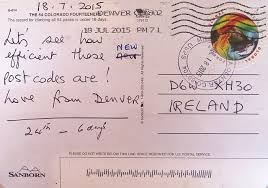 18.7.2015
THE 54 COLORADO FOURTEENERS
DENVER
18 JUL 2015 PM 7 L
Lets see how
efficient those NEW
post codes are!
Love from Denver
24th - 6 days
D6W XH30
IRELAND
PLEASE DO NOT WRITE BELOW THIS LINE. SPACE RESERVED FOR U.S. POSTAL SERVICE.
SANBORN